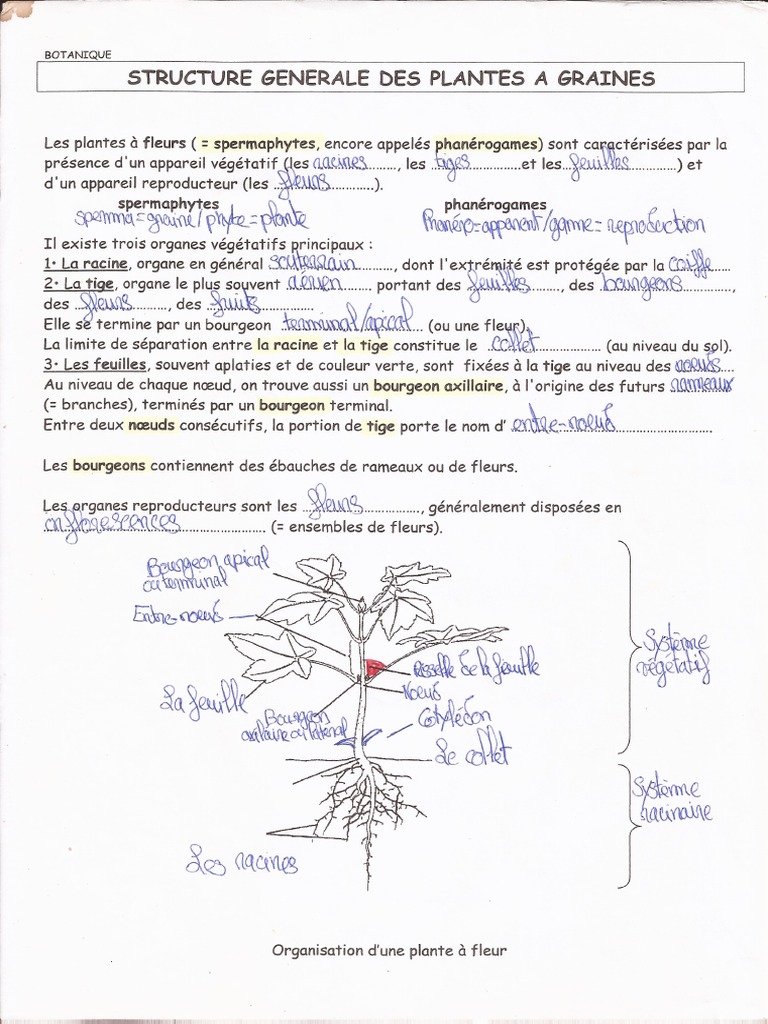 BOTANIQUE
STRUCTURE GENERALE DES PLANTES A GRAINES
Les plantes à fleurs ( = spermaphytes, encore appelés phanérogames) sont caractérisées par la
présence d'un appareil végétatif (les racines............, les tiges...............et les feuilles............) et
d'un appareil reproducteur (les fleurs............).
spermaphytes phanérogames
sperma=graine/phyte=plante Phanéro=apparent/game=reproduction
Il existe trois organes végétatifs principaux :
1• La racine, organe en général souterrain.........., dont l'extrémité est protégée par la coiffe.....
2• La tige, organe le plus souvent aérien............ portant des feuilles........, des bourgeons............,
des fleurs............, des fruits...............
Elle se termine par un bourgeon terminal/apical.... (ou une fleur).
La limite de séparation entre la racine et la tige constitue le collet.................... (au niveau du sol).
3• Les feuilles, souvent aplaties et de couleur verte, sont fixées à la tige au niveau des noeuds....
Au niveau de chaque nœud, on trouve aussi un bourgeon axillaire, à l'origine des futurs rameaux
(= branches), terminés par un bourgeon terminal.
Entre deux nœuds consécutifs, la portion de tige porte le nom d' entre-noeud........................
Les bourgeons contiennent des ébauches de rameaux ou de fleurs.
Les organes reproducteurs sont les fleurs..............., généralement disposées en
inflorescences..................... (= ensembles de fleurs).
Bourgeon apical
ou terminal
Entre-noeuds
Système
végétatif
Aisselle de la feuille
Noeud
La feuille
Bourgeon
axilaire ou latéral
Cotylédon
Le collet
Système
racinaire
Les racines
Organisation d'une plante à fleur